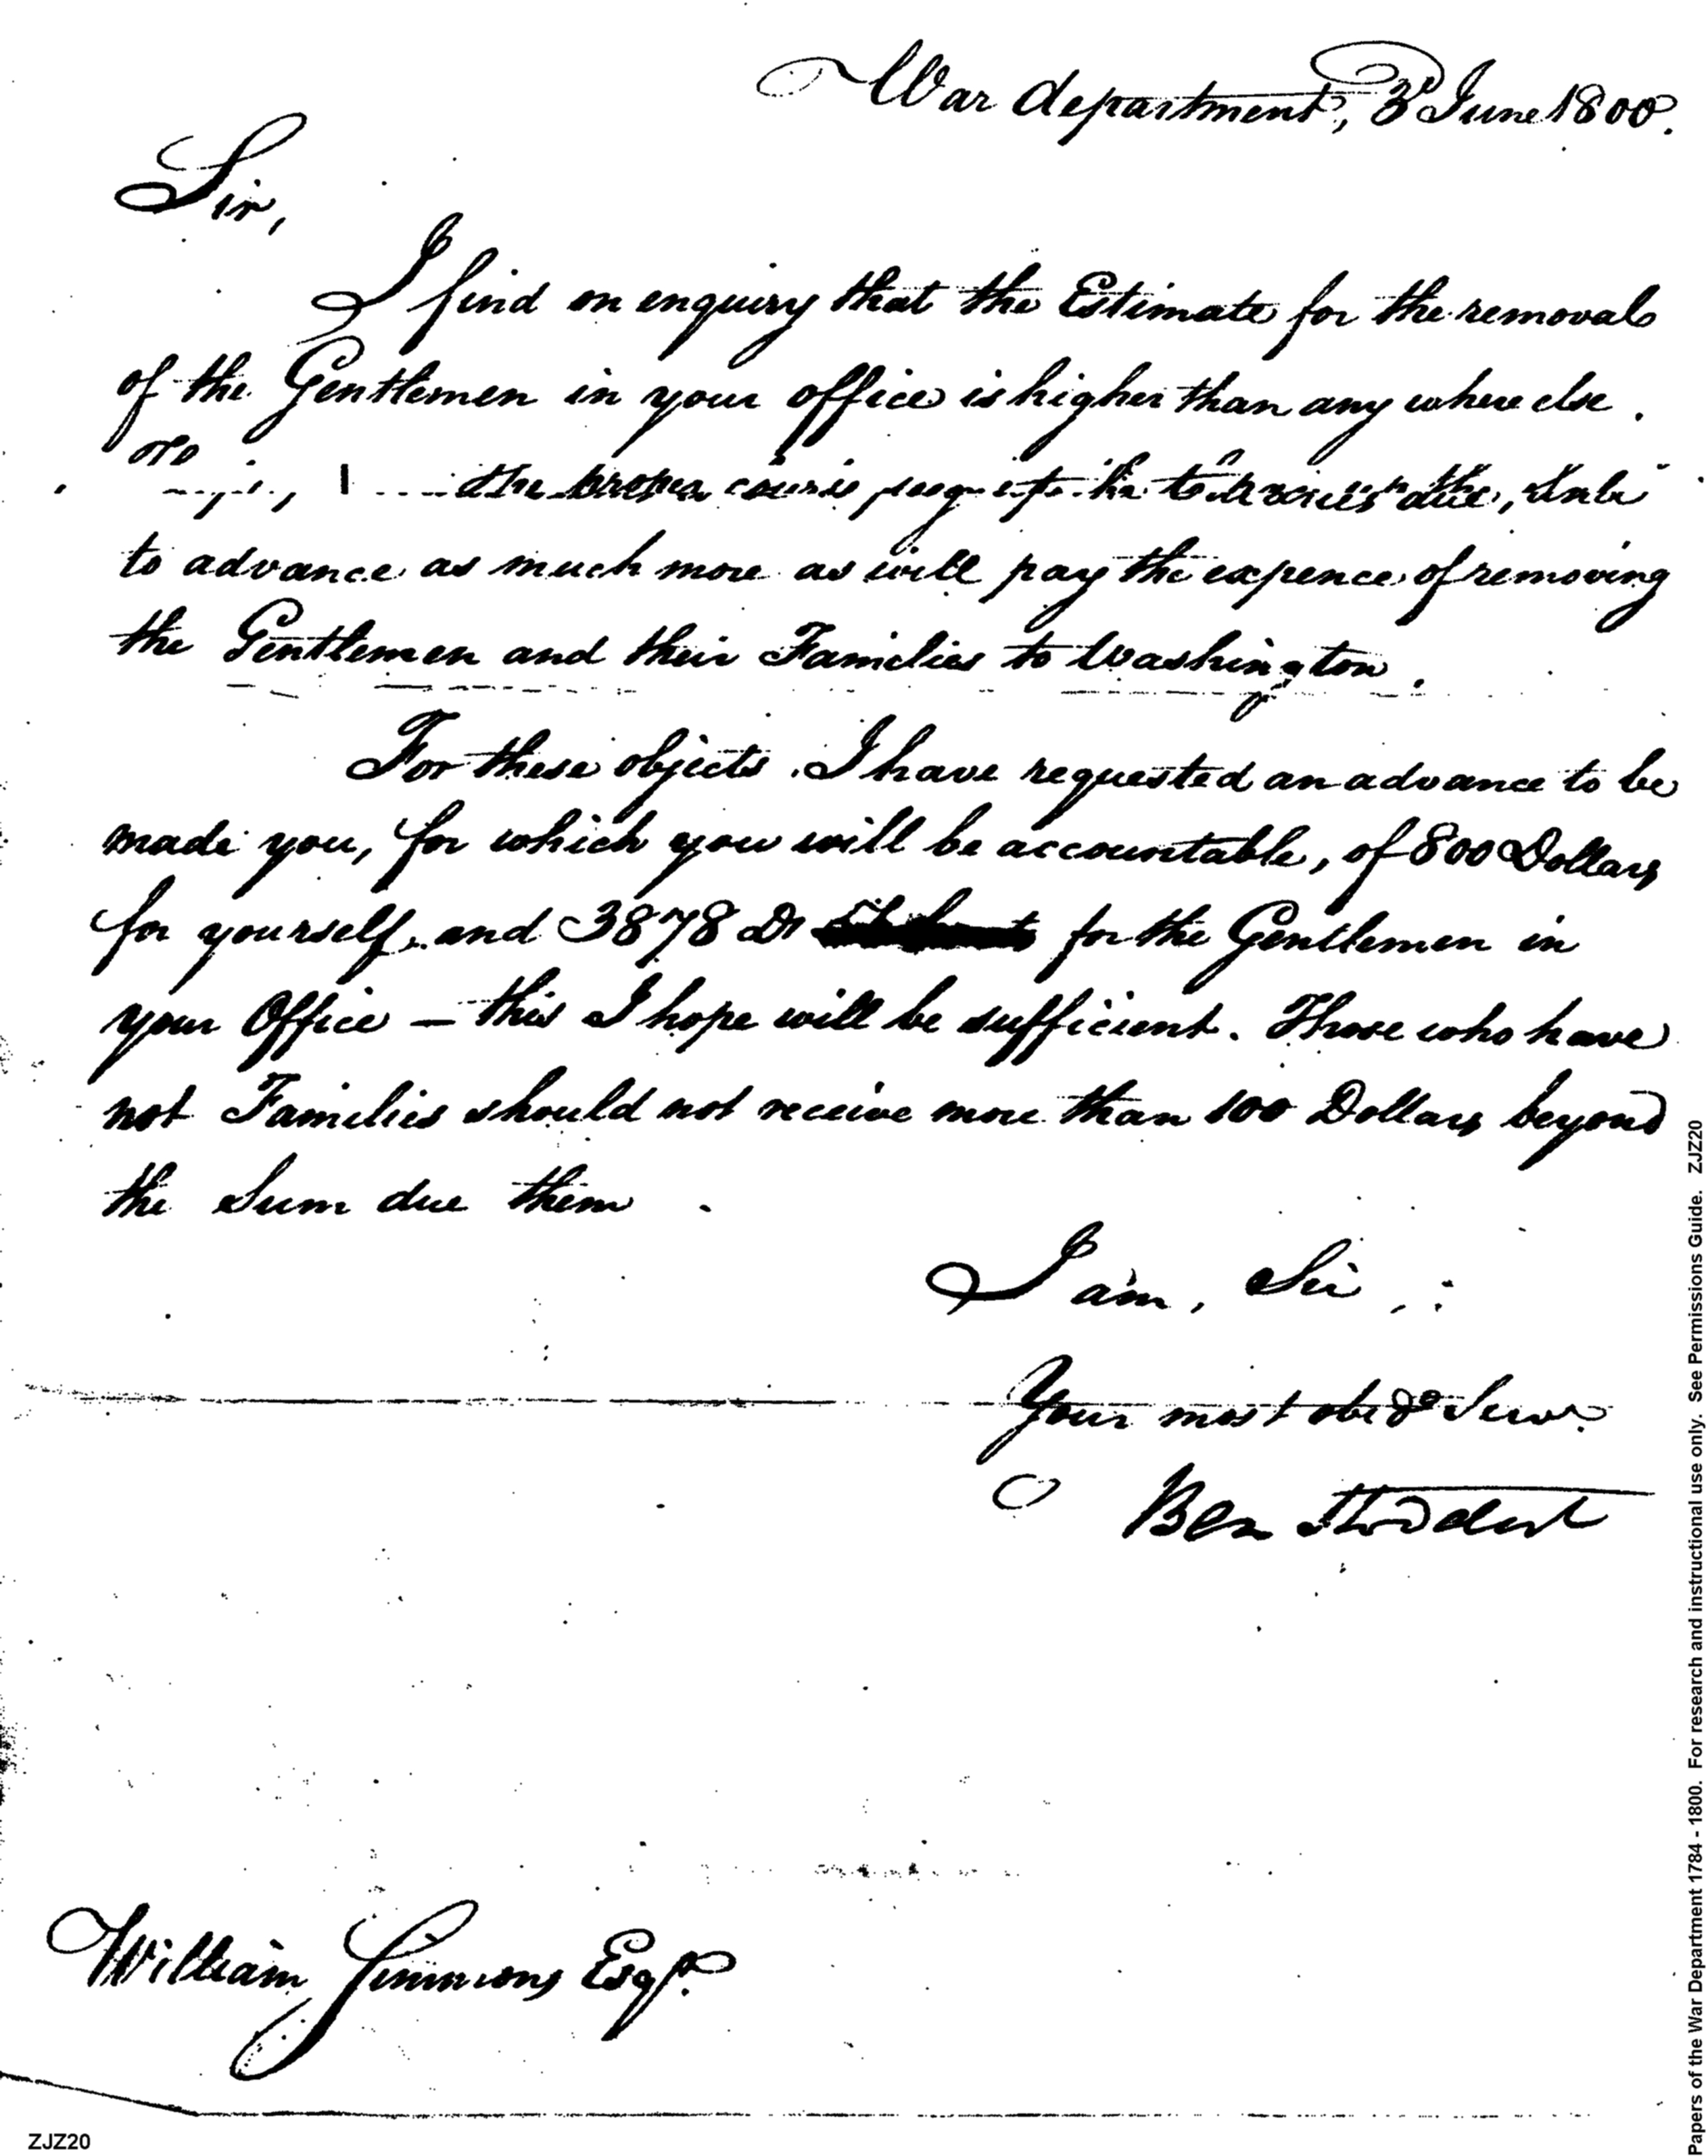 War department, 3d June 1800.
Sir,
I find on enquiry that the Estimate for the removal
of the Gentlemen in your office is higher than any where else.
the proper course to the due, &
to advance as much more as will pay the expence of removing
the Gentlemen and their Families to Washington.
For these objects I have requested an advance to be
made you, for which you will be accountable, of 800 Dollars
for yourself, and 3878 Ds for the Gentlemen in
your Office — this I hope will be sufficient. Those who have
not Families should not receive more than 100 Dollars beyond
the Sum due them.
I am, Sir,
Your most obedt Servt.
Ben Stoddert
William Simmons Esqr.
ZJZ20
Papers of the War Department 1784 - 1800. For research and instructional use only. See Permissions Guide. ZJZ20